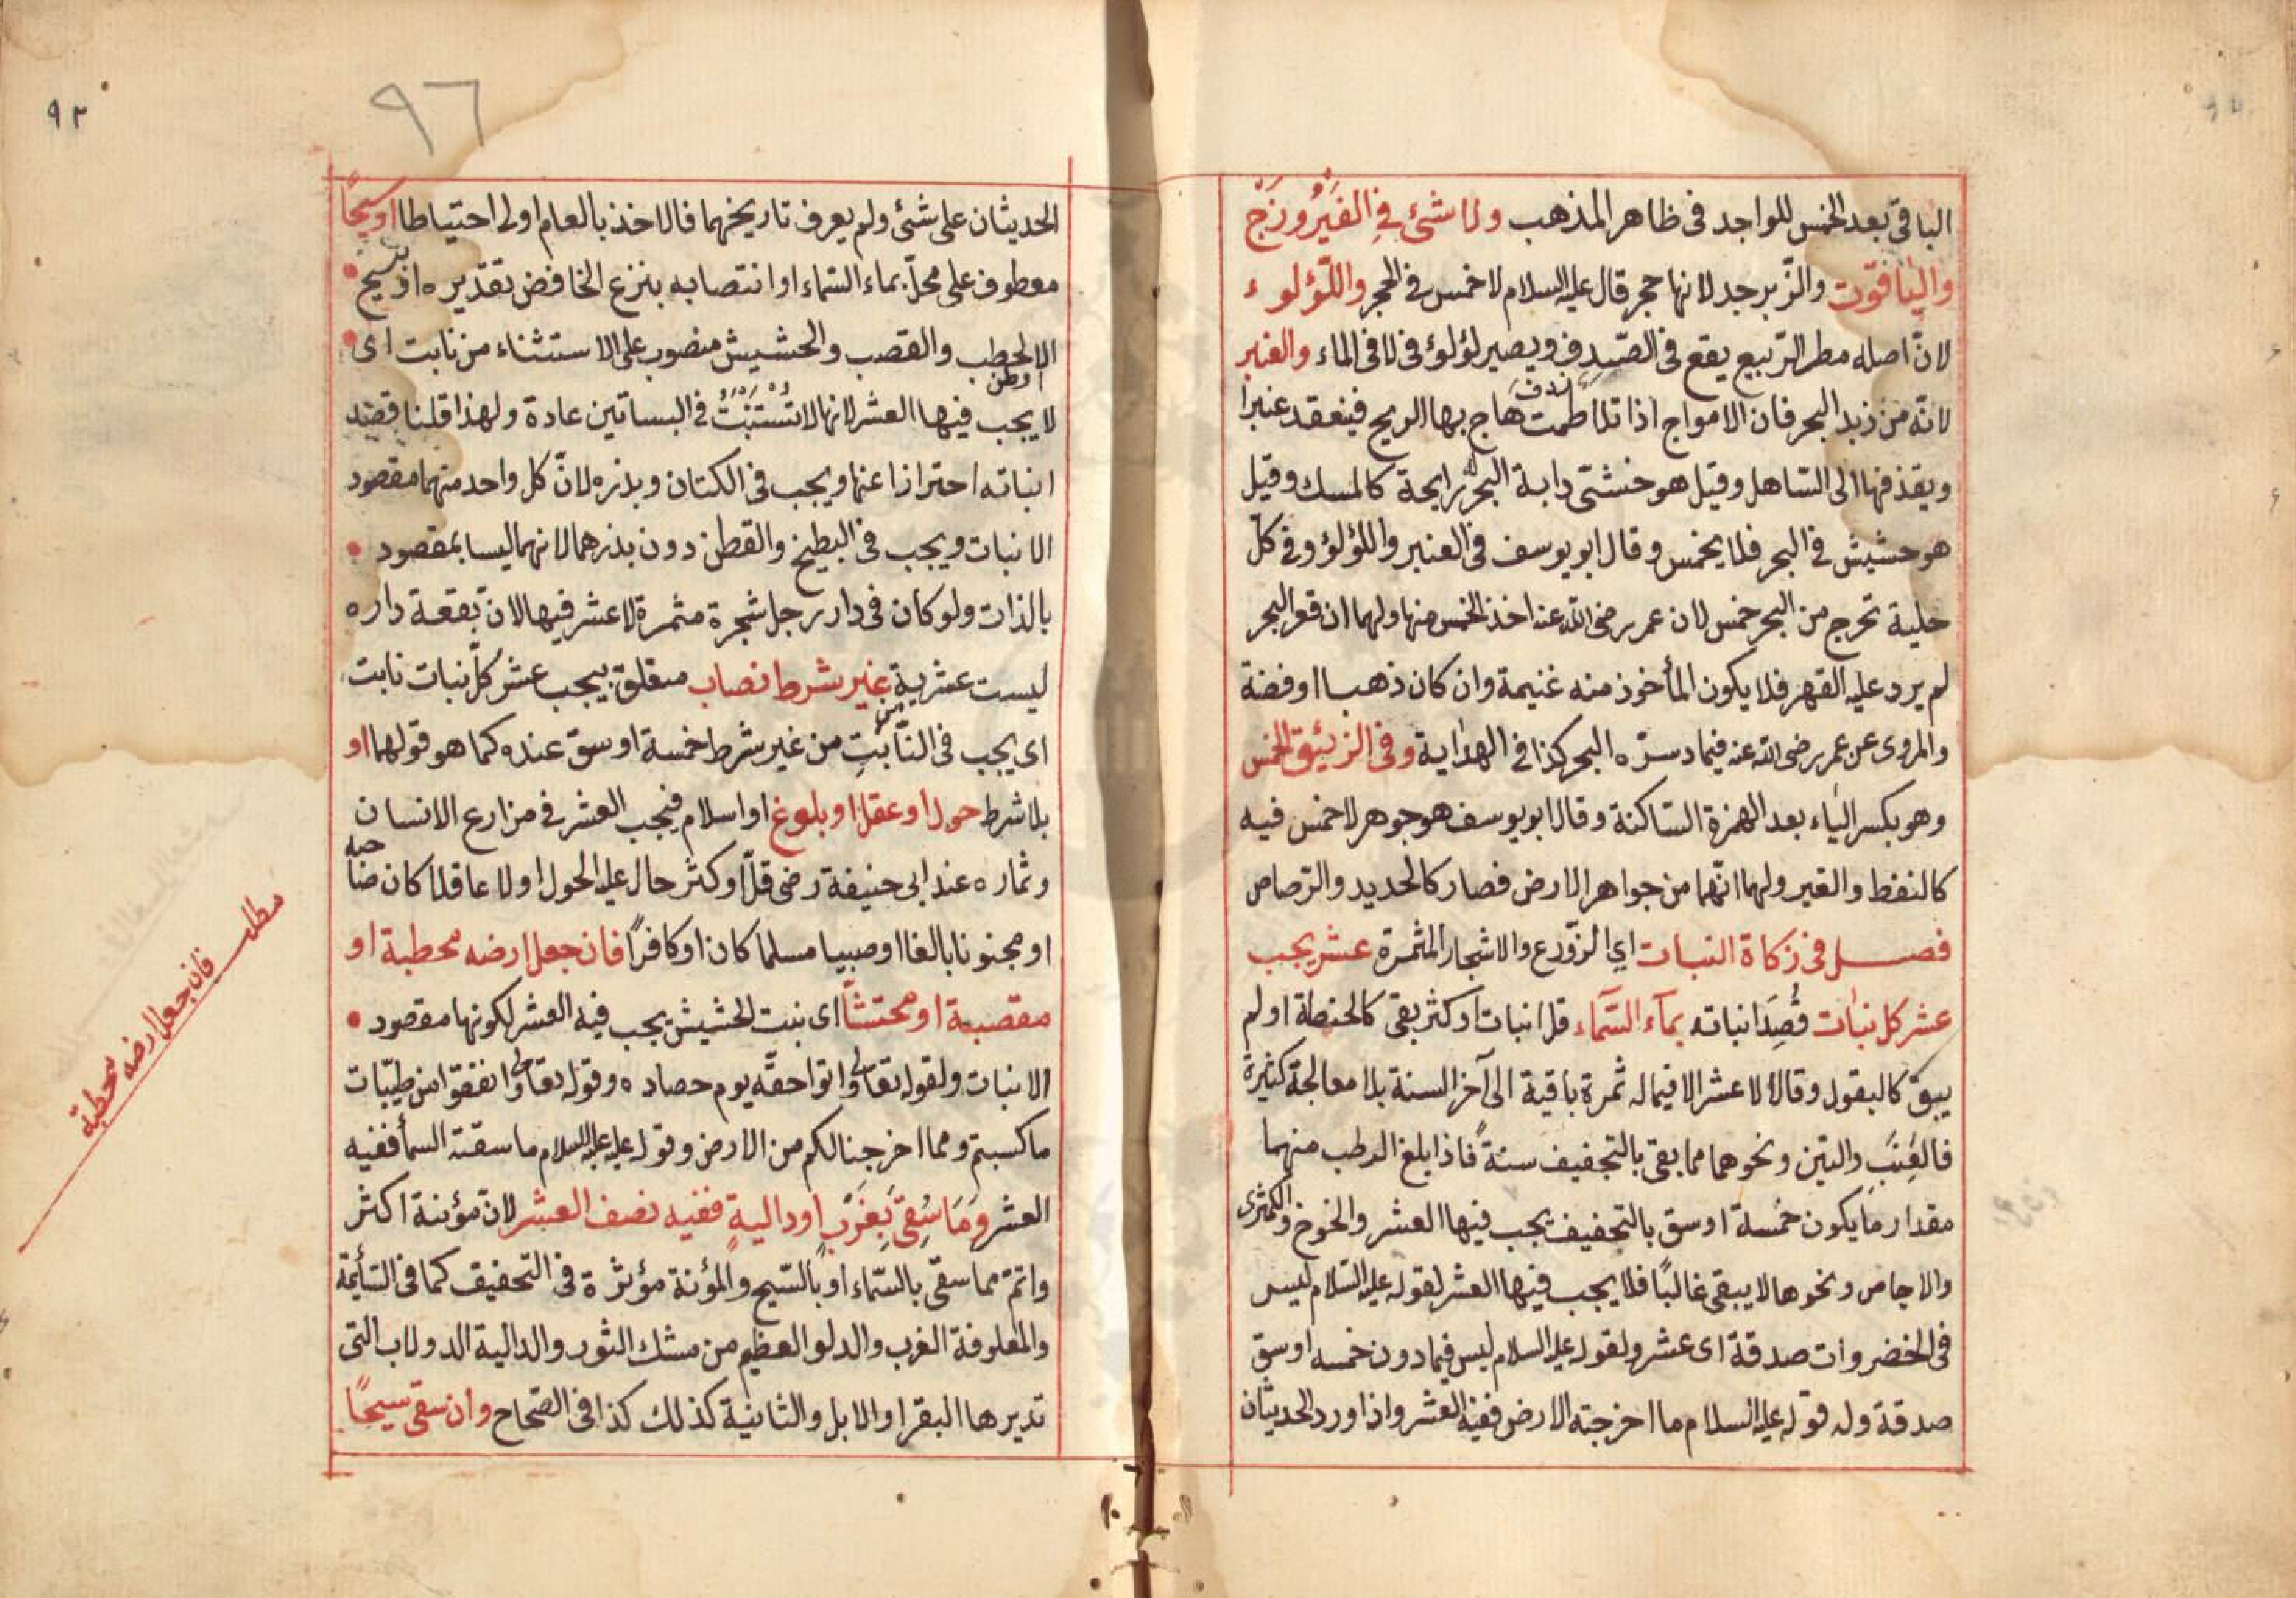 الباقى بعد الخمس للواجد فى ظاهر المذهب ولا شئ فى الفَيْرُوزَج
والياقوت والزّبرجد لانها حجر قال عليه السلام لا خمس فى الحجر واللّؤلوء
لانّ اصله مطر الرّبيع يقع فى الصّدف ويصير لؤلؤ فى لا فى الماء والعنبر
لانّه من ذبد البحر فان الامواج اذا تلاطمت هاج بها الريح فينعقد عنبرا
ويقذفها الى السّاهل وقيل هو خنثى دابة البحر له رايحة كالمسك وقيل
هو حشيش فى البحر فلا يخمس وقال ابو يوسف فى العنبر واللؤلؤ وفى كلّ
حلية تخرج من البحر خمس لان عمر رضى الله عنه اخذ الخمس منها ولهما ان قعر البحر
لم يرد عليه القهر فلا يكون المأخوذ منه غنيمة وان كان ذهبا او فضة
والمروى عن عمر رضى الله عنه فيما دسرّه البحر كذا فى الهداية وفى الزيئق الخمس
وهو بكسر الياء بعد الهمزة السّاكنة وقال ابو يوسف هو جوهر لا خمس فيه
كالنفط والقير ولهما انّهما من جواهر الارض فصار كالحديد والرّصاص
فصل فى زكاة النبات اي الزّورع والاشجار المثمرة عشر يجب
عشر كل نبات قُصِدَ انباته بمآء السّمآء قل انبات او كثر بقى كالحنطة او لم
يبق كالبقول وقالا لا عشر الا فيما له ثمرة باقية الى آخر السنة بلا معالجة كثيرة
فالعِنَب والتين ونحوهما مما بقى بالتجفيف سنةً فاذا بلغ الرطب منهما
مقدار ما يكون خمسة اوسق بالتجفيف يجب فيها العشر والخوخ والكمّثرى
والاجاص ونحوها لا يبقى غالبًا فلا يجب فيها العشر لقوله عليه السّلام ليس
فى الخضروات صدقة اى عشر ولقوله عليه السلام ليس فيما دون خمسه اوسق
صدقة وله قوله عليه السلام ما اخرجته الارض ففيه العشر واذا ورد الحديثان
٩٢
٩٦
الحديثان على شئ ولم يعرف تاريخهما فالاخذ بالعام اولى احتياطا او سيحًا
معطوف على محلّ بماء السّماء او انتصابه بنزع الخافض بتقديره او بسيح
الا لحطب والقصب والحشيش منصوب على الاستثناء من نابت اى
لا يجب فيها العشر لانها لا تُسْتَنْبَتُ فى البساتين عادة ولهذا قلنا قصد
انباته احترازا عنها ويجب فى الكتان وبذره لانّ كل واحد منهما مقصود
الانبات ويجب فى البطيخ والقطن دون بذرهما لانهما ليسا بمقصود
بالذات ولو كان فى دار رجل شجرة مثمرة لا عشر فيها لانّ بقعة داره
ليست عشرية غير شرط نصاب متعلق بيجب عشر كلّ نبات نابت
اى يجب فى النّابتِ من غير شرط خمسة اوسق عنده كما هو قولهما او
بلا شرط حول او عقل او بلوغ او اسلام فيجب العشر فى مزارع الانسان
وثماره عند ابى حنيفة رضى قلّ او كثر حال عليه الحول او لا عاقلا كان صاحبه
او مجنونا بالغا او صبيا مسلما كان او كافرًا فان جعل ارضه محطبة او
مقصبة او محتشّا اى نبت الحشيش يجب فيه العشر لكونها مقصود
الانبات ولقوله تعالى واتوا حقّه يوم حصاده وقوله تعالى وانفقوا من طيّبات
ما كسبتم ومما اخرجنا لكم من الارض وقوله عليه السلام ما سقته السمأ ففيه
العشر وَمَا سُقِىَ بِغَرْبٍ او داليةٍ ففيه نصف العشر لانّ مؤنية اكثر
واتمّ مما سقى بالسّماء او بالسّيح والمؤنة مؤثرة فى التخفيف كما فى السّأيمة
والمعلوفة الغرب والدلو العظيم من مشك الثور والدالية الدولاب التى
تديرها البقر او الابل والثانية كذلك كذا فى الصّحاح وان سقى سيحًا
مطلب فان جعل ارضه محطبة